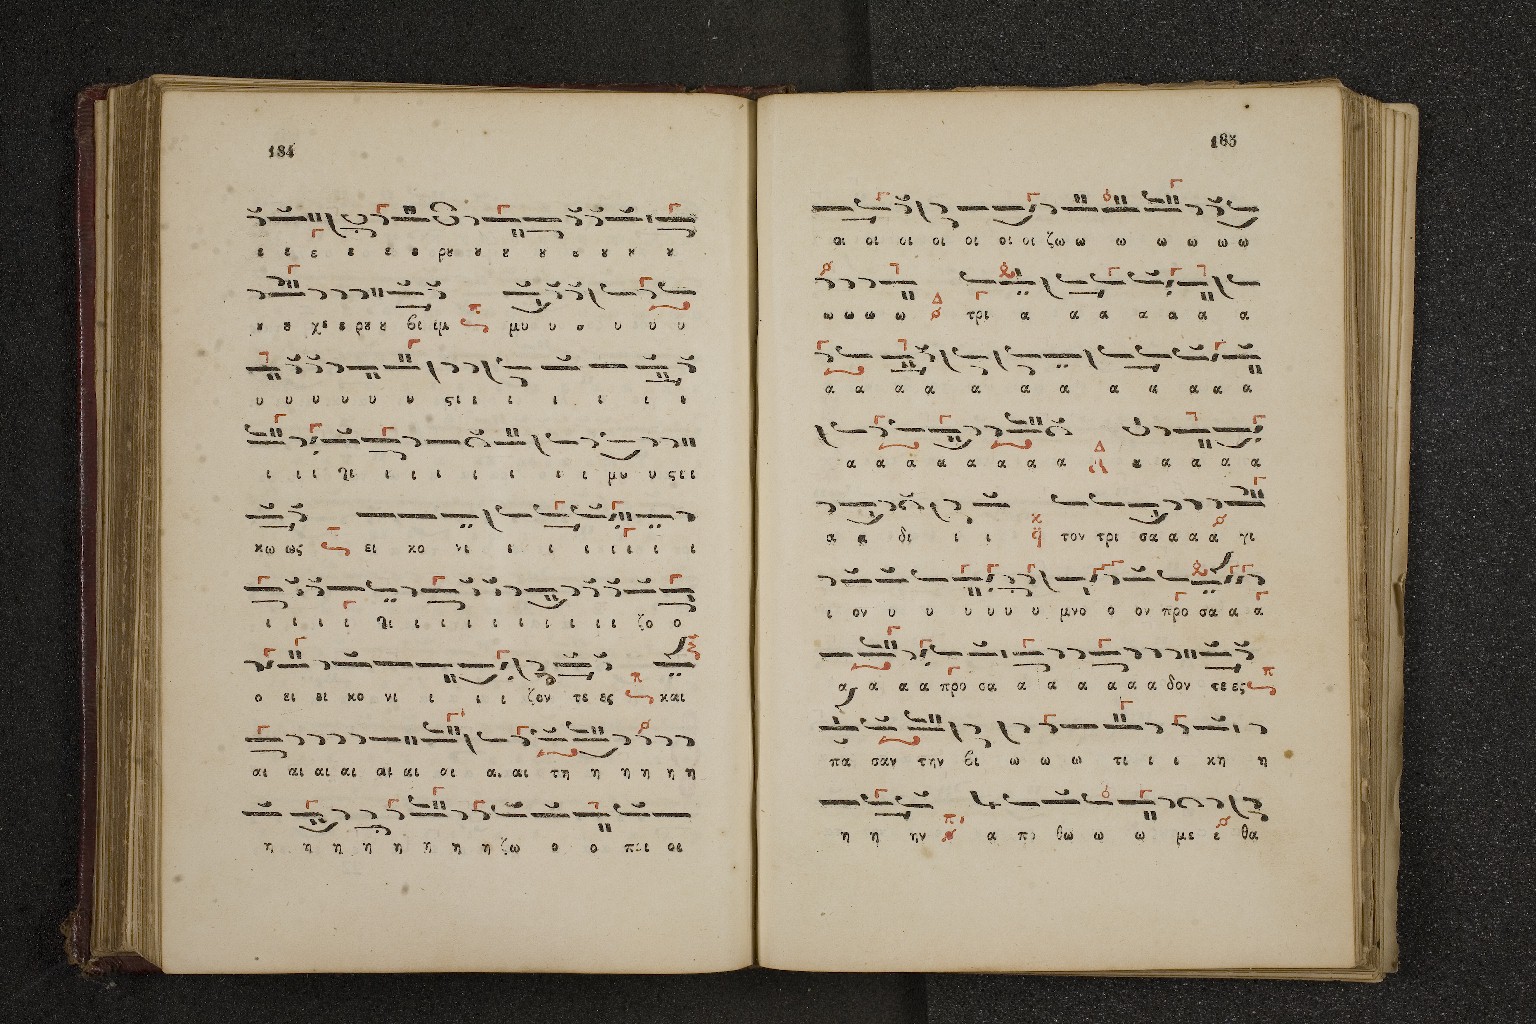 184
ε ε ε ε ε ε ρȣ ȣ ȣ ȣ ȣ ȣ ȣ ȣ
ȣ ȣ χε ε ρȣ ȣ βι ιμ μυ υ υ υ υ υ
υ υ υ υ υ υ ςι ι ι ι ι ι ι
ι ι ι λι ι ι ι ι ι ι ι μυ υ ςι ι
κω ως ει κο νι ι ι ι ι ι ι ι
ι ι ι ι λι ι ι ι ι ι ι ι ι ι ζο ο
ο ει ει κο νι ι ι ι ζον τε ες και
αι αι αι αι αι αι αι αι αι τη η η η η η
η η η η η η η η ζω ο ο ποι οι
185
οι οι οι οι οι οι οι ζω ω ω ω ω ω ω
ω ω ω ω τρι α α α α α α α
α α α α α α α α α α α α
α α α α α α α α α α α α α
α α δι ι ι τον τρι σα α α α γι
ι ον υ υ υ υ υ υ μνο ο ον προ σα α α
α α α α προ σα α α α α α α δον τε ες
πα σαν την βι ω ω ω τι ι ι κη η
η η ην α πο θω ω ω με ε θα